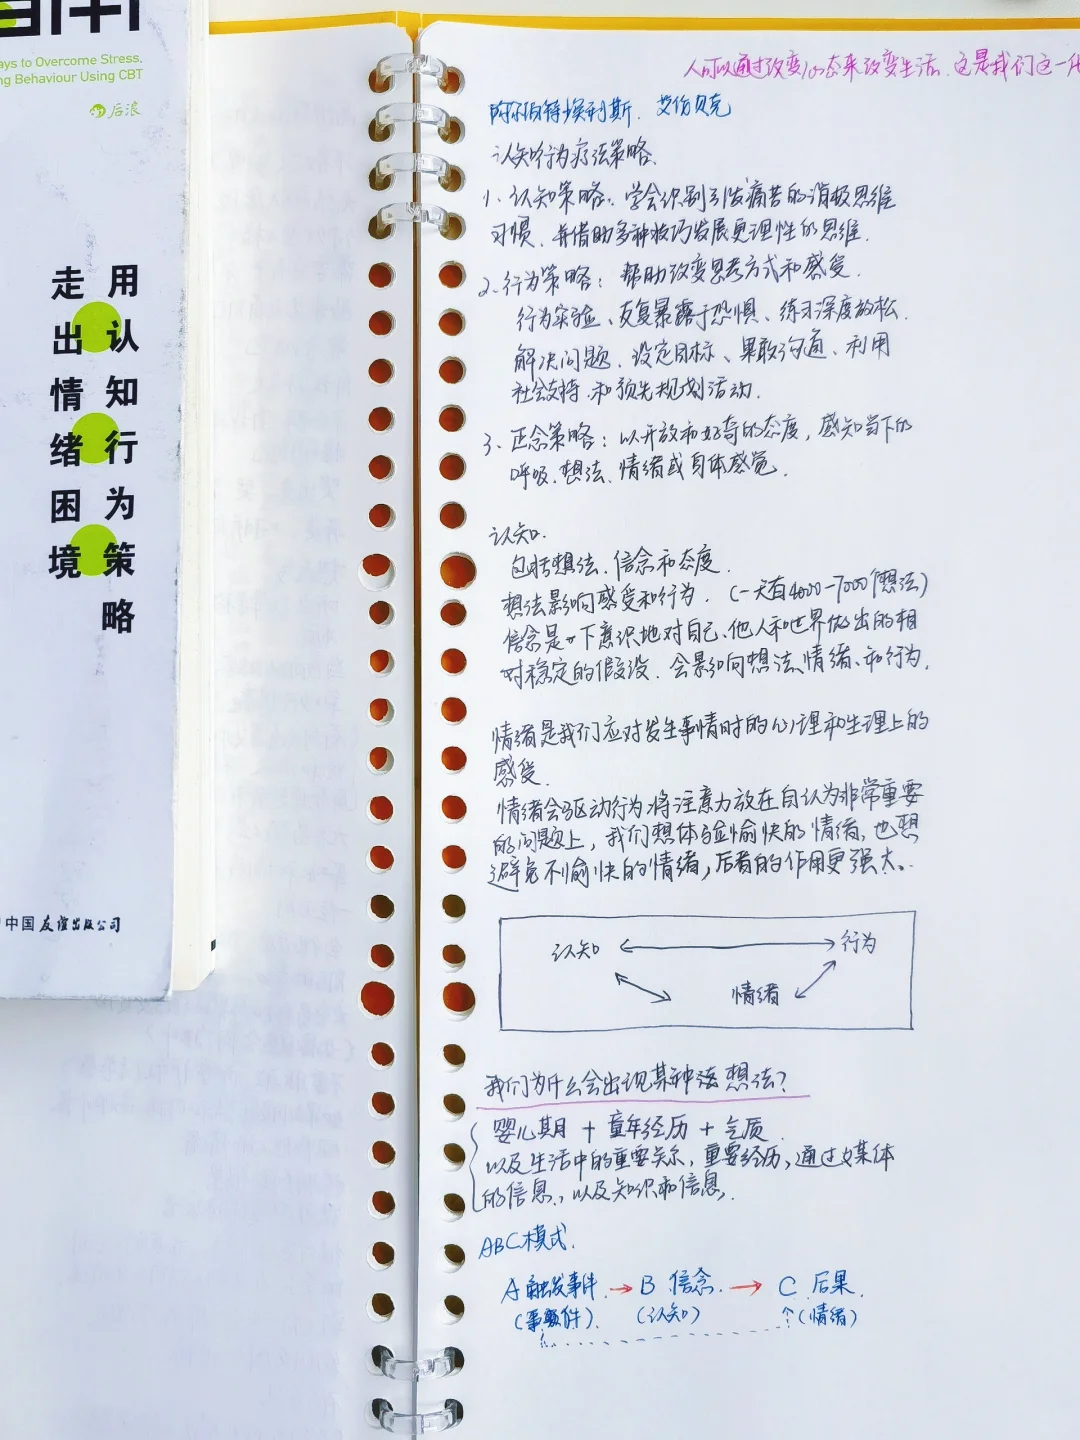 ays to Overcome Stress,
ng Behaviour Using CBT
后浪
用认知行为策略
走出情绪困境
中国友谊出版公司
人可以通过改变心态来改变生活。这是我们这一
阿尔伯特·埃利斯. 艾伦·贝克
认知行为疗法策略.
1. 认知策略: 学会识别引发痛苦的消极思维
习惯、并借助多种技巧发展更理性的思维.
2. 行为策略: 帮助改变思考方式和感受.
行为实验、反复暴露于恐惧、练习深度放松.
解决问题、设定目标、果敢沟通、利用
社会支持、和预先规划活动.
3. 正念策略: 以开放和好奇的态度, 感知当下的
呼吸、想法、情绪或身体感觉.
认知.
包括想法、信念和态度.
想法影响感受和行为. (一天有4000-7000个想法)
信念是 下意识地对自己、他人和世界做出的相
对稳定的假设. 会影响想法、情绪、和行为.
情绪是我们应对发生事情时的心理和生理上的
感受.
情绪会驱动行为将注意力放在自认为非常重要
的问题上, 我们想体验愉快的情绪, 也想
避免不愉快的情绪, 后者的作用更强大.
认知 ↔ 行为
情绪
我们为什么会出现某种 想法?
婴儿期 + 童年经历 + 气质
以及生活中的重要关系, 重要经历, 通过 媒体
的信息, 以及知识和信息.
ABC模式.
A 触发事件 → B 信念 → C 后果.
(事 件). (认知) ↑(情绪)